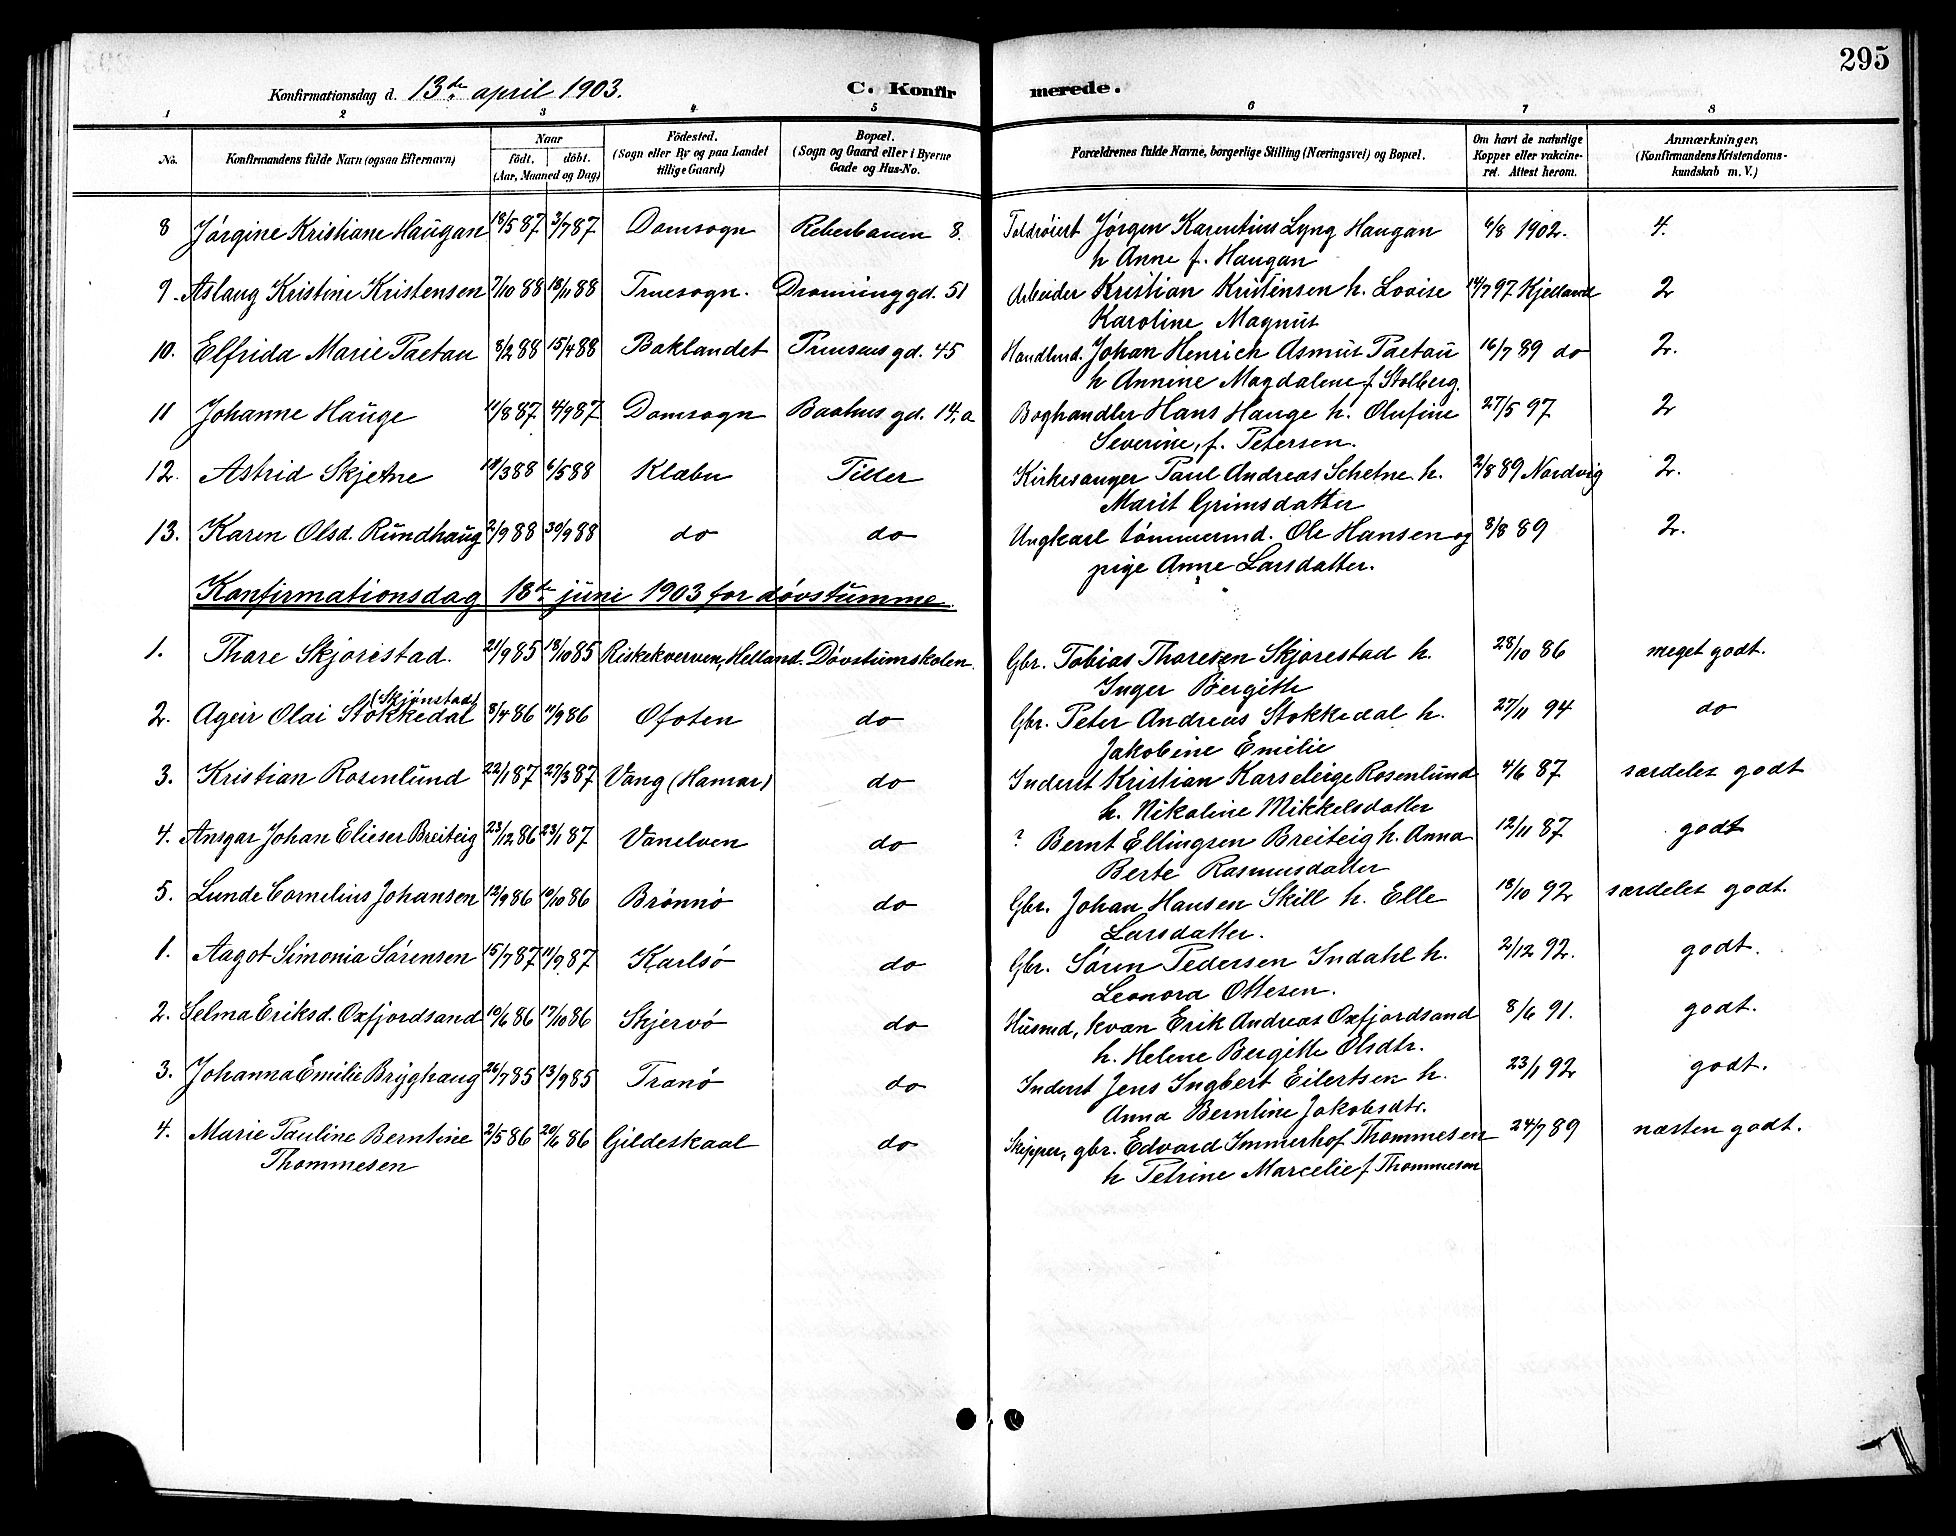 295
Konfirmationsdag d. 13de april 1903. C. Konfirmerede.
1 2 3 4 5 6 7 8
No. Konfirmandens fulde Navn (ogsaa Efternavn) Naar født, døbt. (Aar, Maaned og Dag) Fødested. (Sogn eller By og paa Landet tillige Gaard) Bopæl. (Sogn og Gaard eller i Byerne Gade og Hus-No. Forældrenes fulde Navne, borgerlige Stilling (Næringsvei) og Bopæl. Om havt de naturlige Kopper eller vakcineret. Attest herom. Anmærkninger, (Konfirmandens Kristendomskundskab m. V.)
8 Jørgine Kristiane Haugan 18/5 87 3/7 87 Domsogn Reberbanen 8. Toldrøiert Jørgen Karentius Lyng Haugan 6/8 1902. 4.
h Anne f. Haugan
9. Aslaug Kristine Kristensen 7/10 88 18/11 88 Fruesogn. Dronninggd. 51 Arbeider Kristian Kristensen h. Lovise 14/7 97 Kjelland 2
Karoline Magnus
10. Elfrida Marie Paetau 8/2 88 15/4 88 Baklandet Prinsens gd. 45 Handlmd. Johan Henrich Asmus Paetau 16/7 89 do 2.
h Annine Magdalene f Stolberg.
11 Johanne Hauge 11/8 87 4/9 87 Domsogn Baahus gd. 14,a Boghandler Hans Hauge h. Olufine 27/5 97 2
Severine, f. Petersen.
12. Astrid Skjetne 18/3 88 6/5 88 Klæbu Tiller Kirkesanger Paul Andreas Schetne h. 2/8 89 Nordvig 2.
Marit Grimsdatter
13. Karen Olsd. Rundhaug 2/9 88 30/9 88 do do Ungkarl tømmermd. Ole Hansen og 8/8 89 2.
pige Anne Larsdatter.
Konfirmationsdag 18de juni 1903 for døvstumme.
1. Thore Skjørestad. 21/9 85 18/10 85 Riskekverven, Helland. Døvstumskolen. Gbr. Tobias Thoresen Skjørestad h. 28/10 86 meget godt.
Inger Bergith
2. Ageir Olai Stokkedal (Skjønstad) 8/4 86 11/9 86 Ofoten do Gbr. Peter Andreas Stokkedal h. 27/11 94 do
Jakobine Emilie
3. Kristian Rosenlund 22/1 87 27/3 87 Vang (Hamar) do Inderst Kristian Karseleige Rosenlund 4/6 87 særdeles godt
h. Nikoline Mikkelsdatter
4. Ansgar Johan Elieser Breiteig 23/12 86 23/1 87 Vanelven do ? Bernt Ellingsen Breiteig h. Anna 12/11 87 godt
Berte Rasmusdatter
5. Lunde Cornelius Johansen 12/9 86 10/10 86 Brønnø do Gbr. Johan Hansen Skill h. Elle 18/10 92 særdeles godt.
Larsdatter.
1. Aagot Simonia Sørensen 15/7 87 11/9 87 Karlsø do Gbr. Søren Pedersen Indahl h. 2/12 92. godt.
Leonora Ottesen.
2. Selma Eriksd. Oxfjordsand 10/6 86 17/10 86 Skjervø do Husmd, kvæn Erik Andreas Oxfjordsand 8/6 91. godt.
h. Helene Bergitte Olsdtr.
3. Johanna Emilie Bryghaug 26/7 85 13/9 85 Tranø do Inderst Jens Ingbert Eilertsen h. 23/1 92 godt.
Anna Berntine Jakobsdtr.
4. Marie Pauline Berntine 2/5 86 20/6 86 Gildeskaal do Skipper, gbr. Edvard Immerhof Thommesen 24/7 89 næsten godt.
Thommesen h Petrine Marcelie f Thommesen